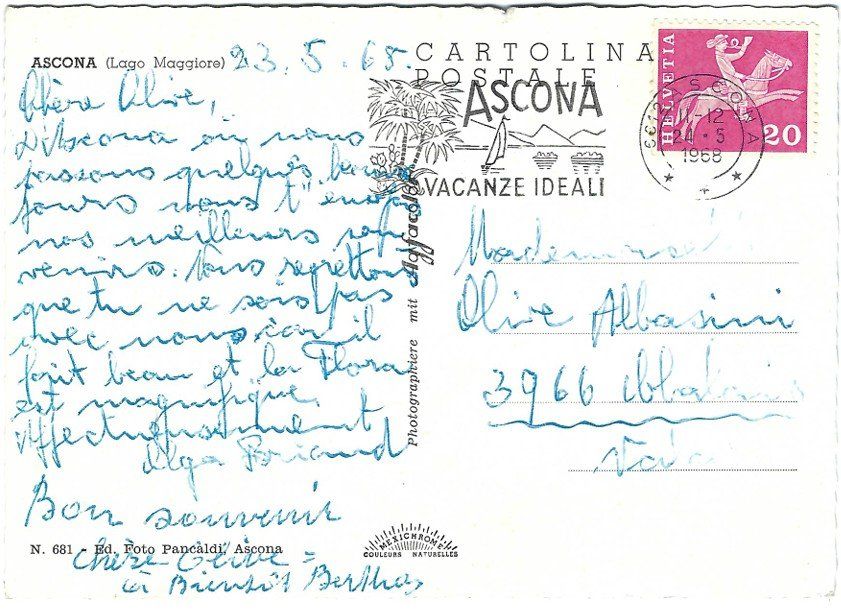 ASCONA (Lago Maggiore) 23.5.68.
Chère Olive,
D'Ascona où nous
passons quelques bons
jours nous t'envoy
nos meilleurs sou
venirs. Nous regrettons
que tu ne sois pas
avec nous car il
fait beau et la Flora
est magnifique.
Affectueusement
Olga Briand
Bon souvenir
N. 681 - Ed. Foto Pancaldi, Ascona
Chère Olive =
à Bientôt Berthe
Photographiere mit Agfacolor
CARTOLINA
POSTALE
ASCONA
VACANZE IDEALI
HELVETIA
20
ASCONA
11-12
24.5
1968
Mademoiselle
Olive Albasini
3966 Chalais
Valais
MEXICHROME
COULEURS NATURELLES